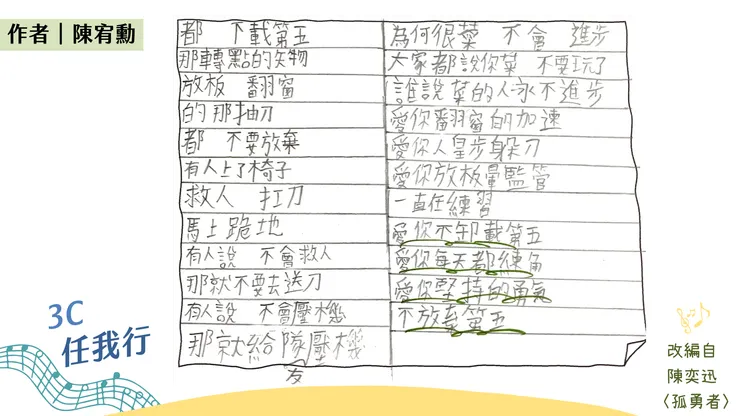 作者｜陳宥勳
都 不載第五
那轉點的失物
放板 翻窗
的那抽刀
都 不要放棄
有人上了椅子
救人 扛刀
馬上跪地
有人說 不會救人
那就不要去送刀
有人說 不會壓機
那就給隊友壓機
為何很菜 不會 進步
大家都說你菜 不要玩了
誰說菜的人永不進步
愛你翻窗的加速
愛你人皇步躲刀
愛你放板暈監管
一直在練習
愛你不卸載第五
愛你每天都練角
愛你堅持的勇氣
不放棄第五
3C
任我行
改編自
陳奕迅
〈孤勇者〉